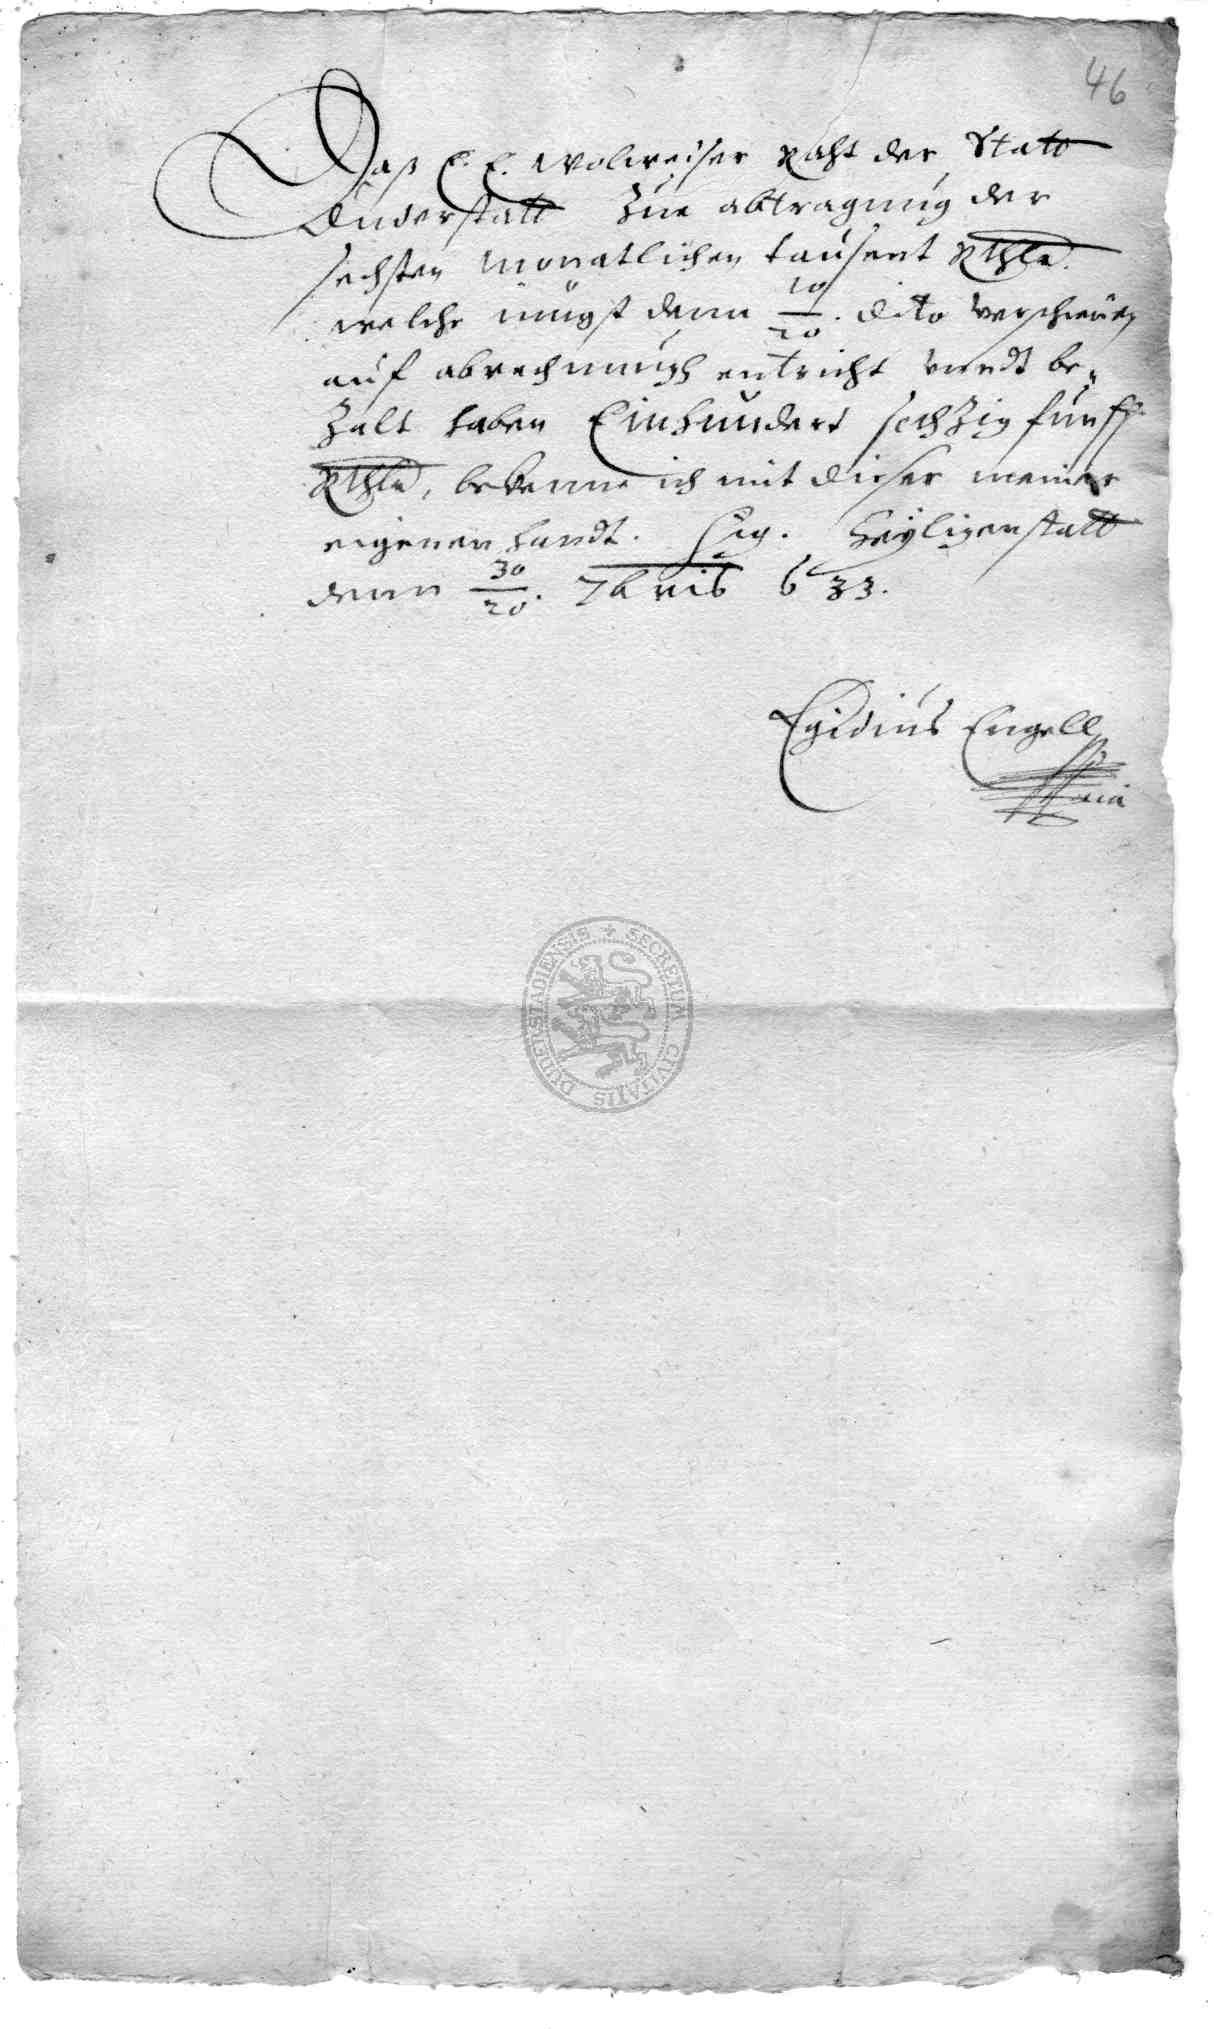 46
Daß E. E. Wolweiser Raht der Statt
Duderstatt Zue abtragung der
sechsten monatlichen tausent Rthlr.
welche iüngst denn 10/20. dito verschienen
auf abrechnungh entricht vnndt be-
Zalt haben Einhundert sechZig fünff
Rthlr, bekenne ich mit dieser meiner
eigenen handt. Sig. Heyligenstatt
denn 30/20. 7bris 633.
Egidius Engell
mia
SECRETUM CIVITATIS DUDERSTADIENSIS